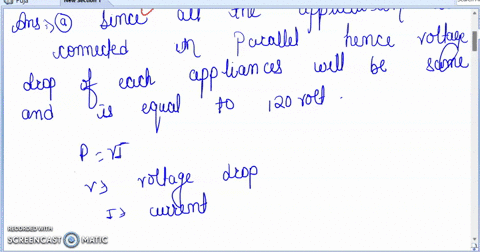 Puja
New Section 1
Ans:- (a) Since all the appliances
connected in Parallel hence voltage
drop of each appliances will be same
and is equal to 120 volt.
P = VI
V → voltage drop
I → current
RECORDED WITH
SCREENCAST MATIC